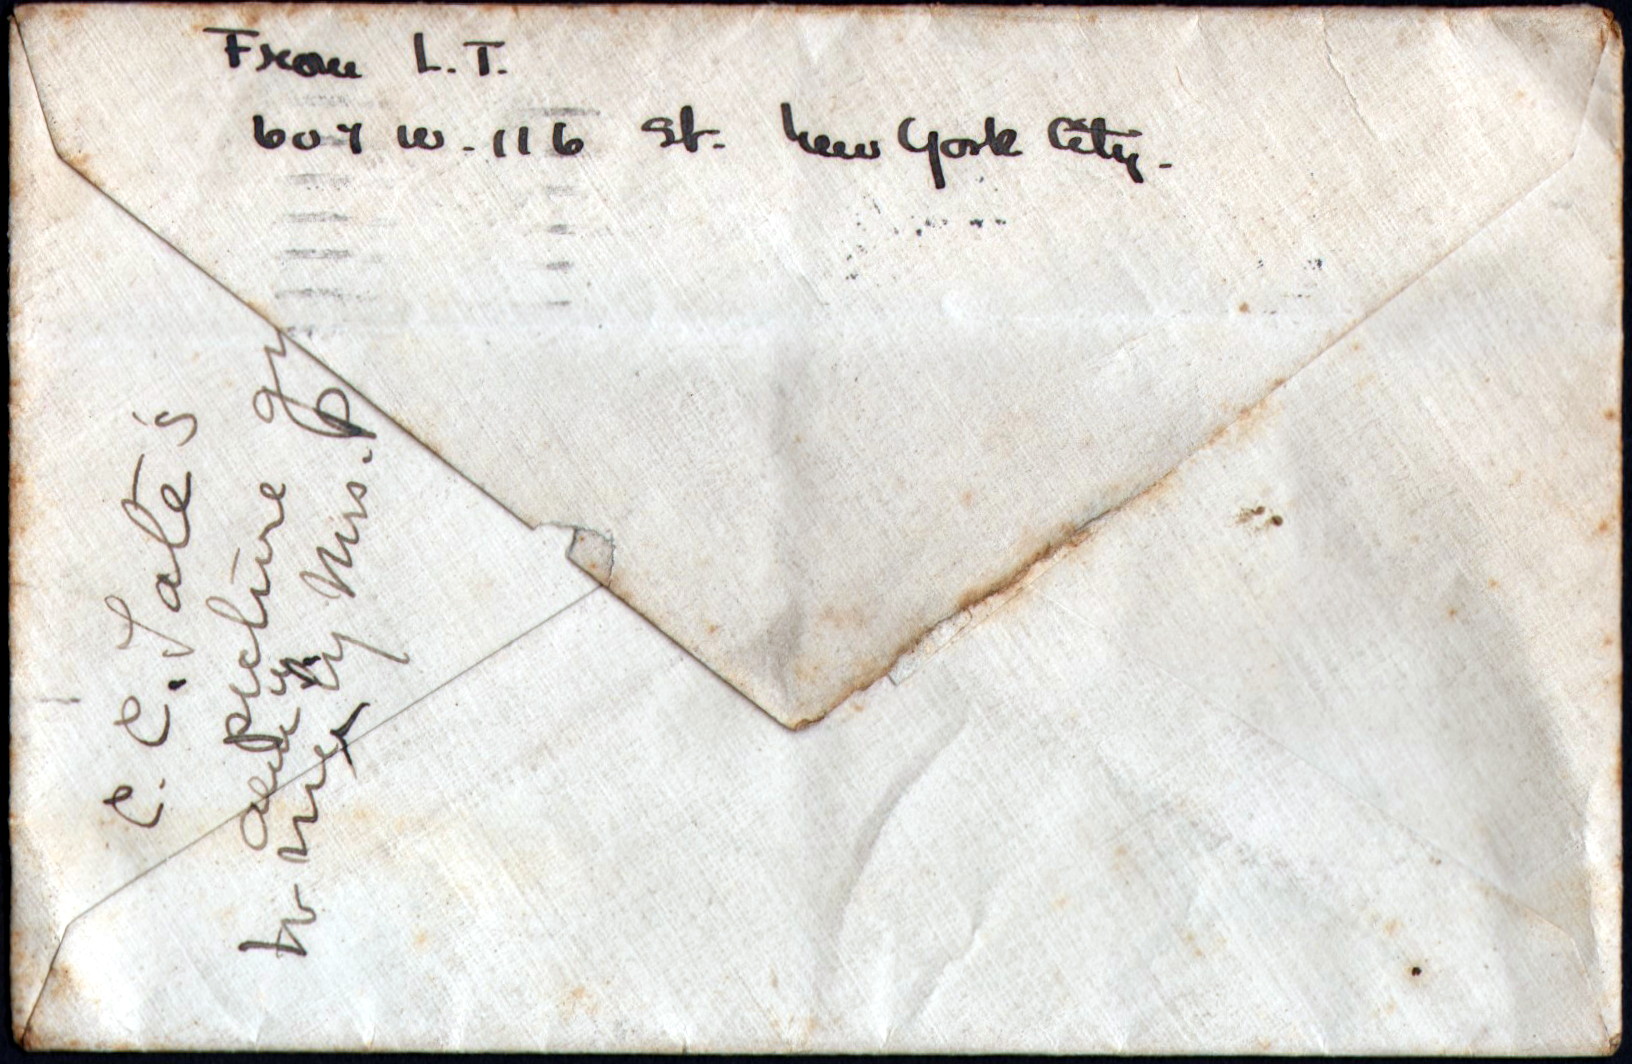 From L.T.
607 W. 116 St. New York City.
C. C. Tate's
picture
by Mrs. P
to my